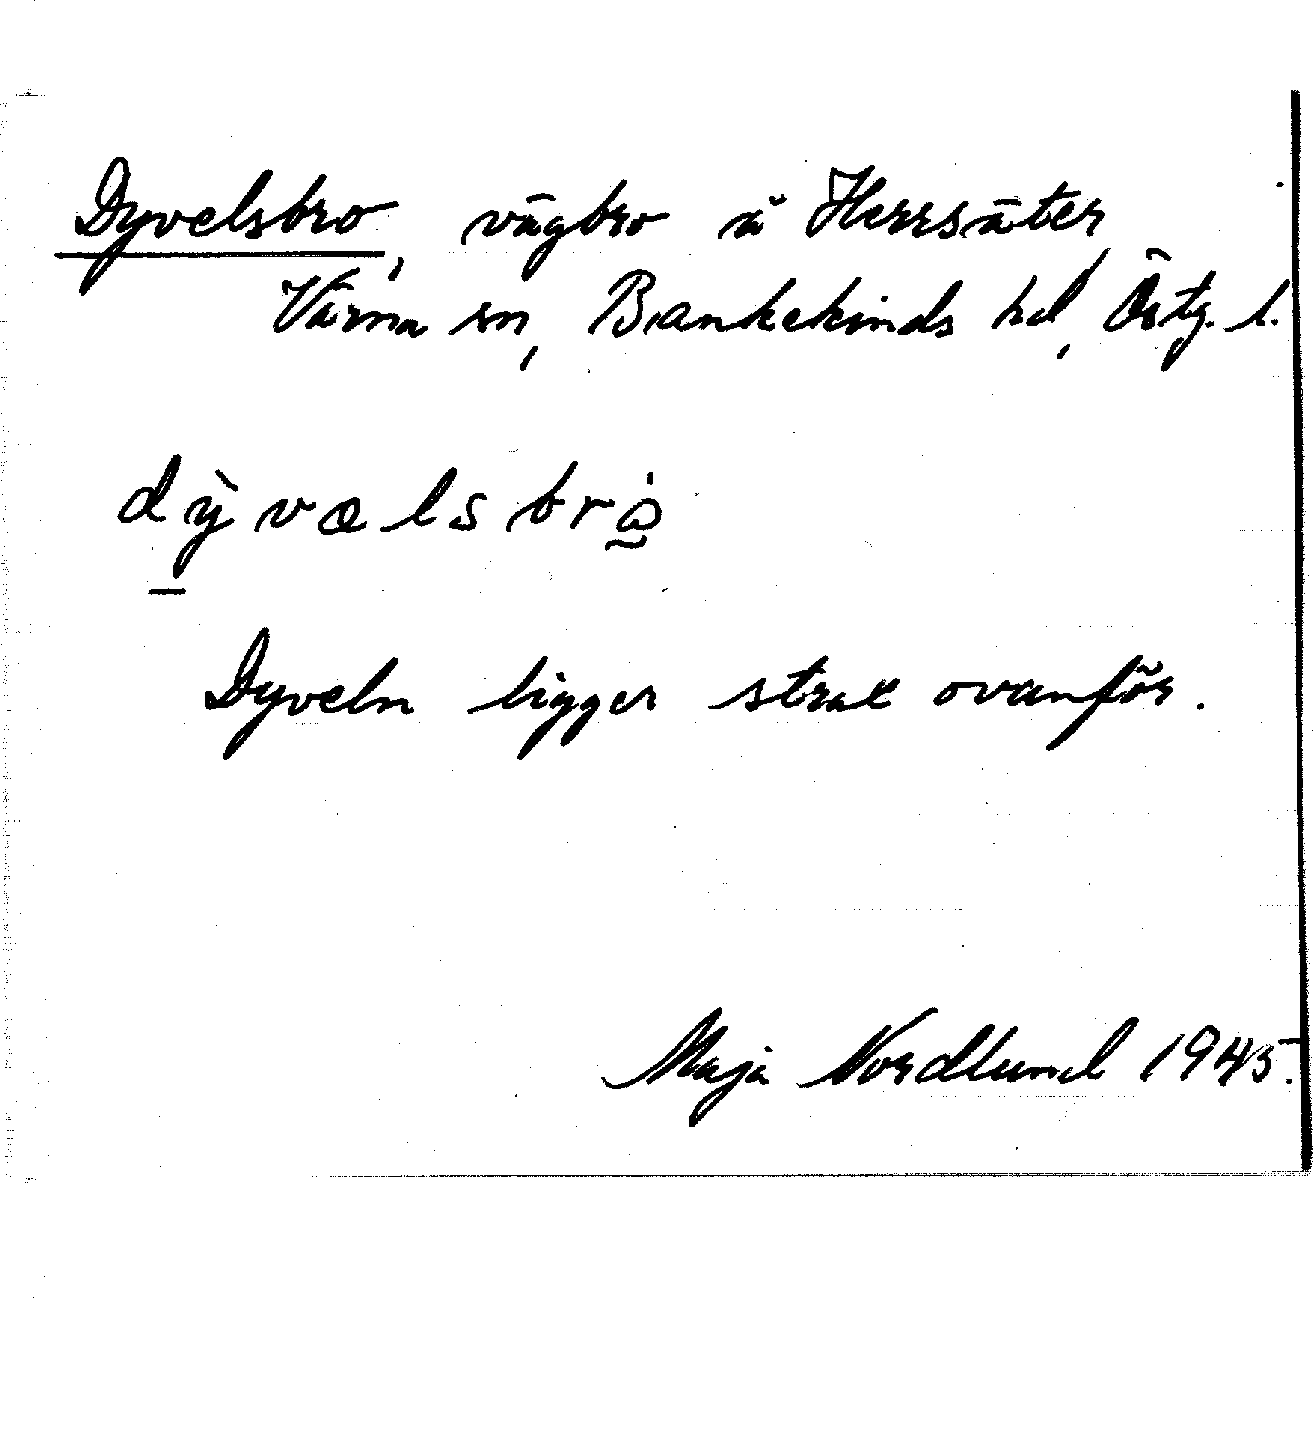 Dyvelsbro, vägbro å Herrsäter,
Värna sn, Bankekinds hd, Östg. l.
dỳvəlsbrȯ
Dyveln ligger strax ovanför.
Maja Nordlund 1945.